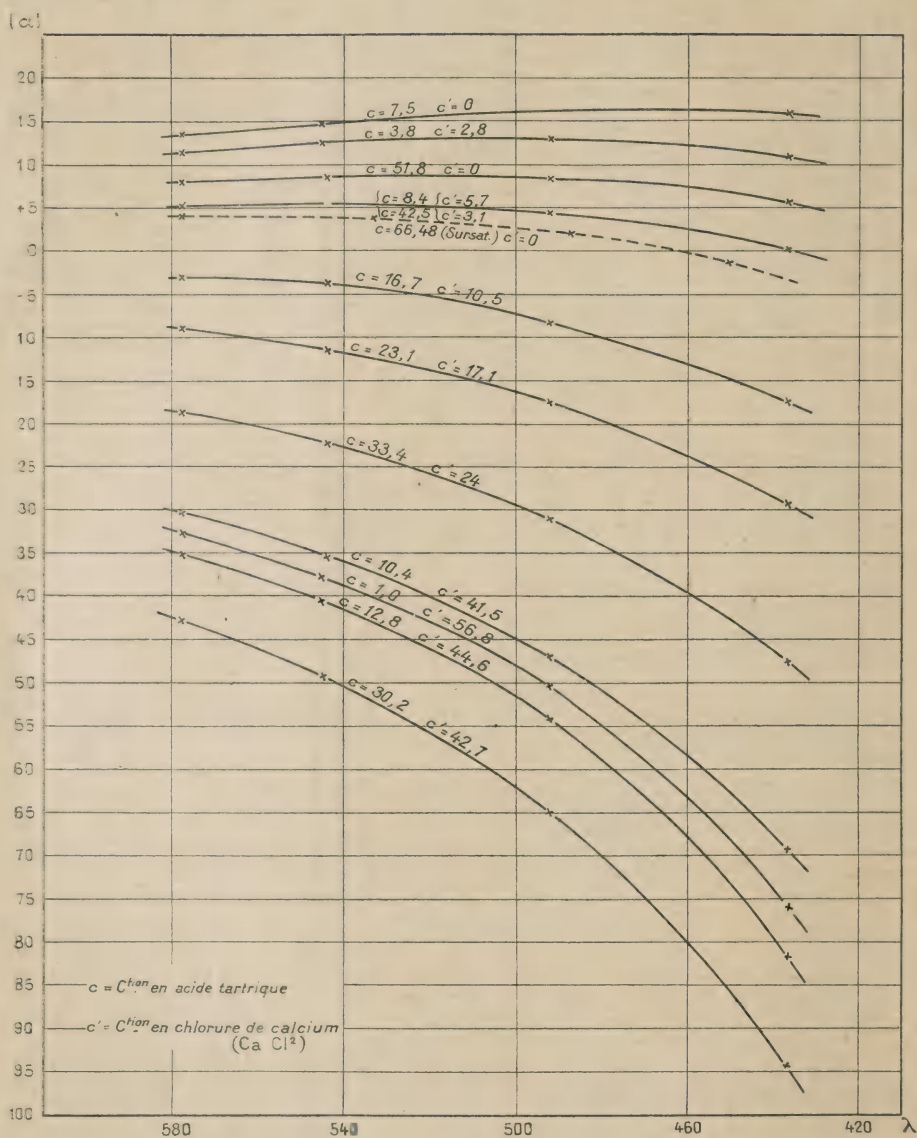 [α]
20
15
10
+5
0
-5
10
15
20
25
30
35
40
45
50
55
60
65
70
75
80
85
90
95
100
c = 7,5 c' = 0
c = 3,8 c' = 2,8
c = 51,8 c' = 0
{c = 8,4 {c' = 5,7
{c = 42,5 {c' = 3,1
c = 66,48 (Sursat.) c' = 0
c = 16,7 c' = 10,5
c = 23,1 c' = 17,1
c = 33,4 c' = 24
c = 10,4 c' = 41,5
c = 1,0 c' = 56,8
c = 12,8 c' = 44,6
c = 30,2 c' = 42,7
c = Ction en acide tartrique
c' = Ction en chlorure de calcium
(Ca Cl²)
580 540 500 460 420 λ